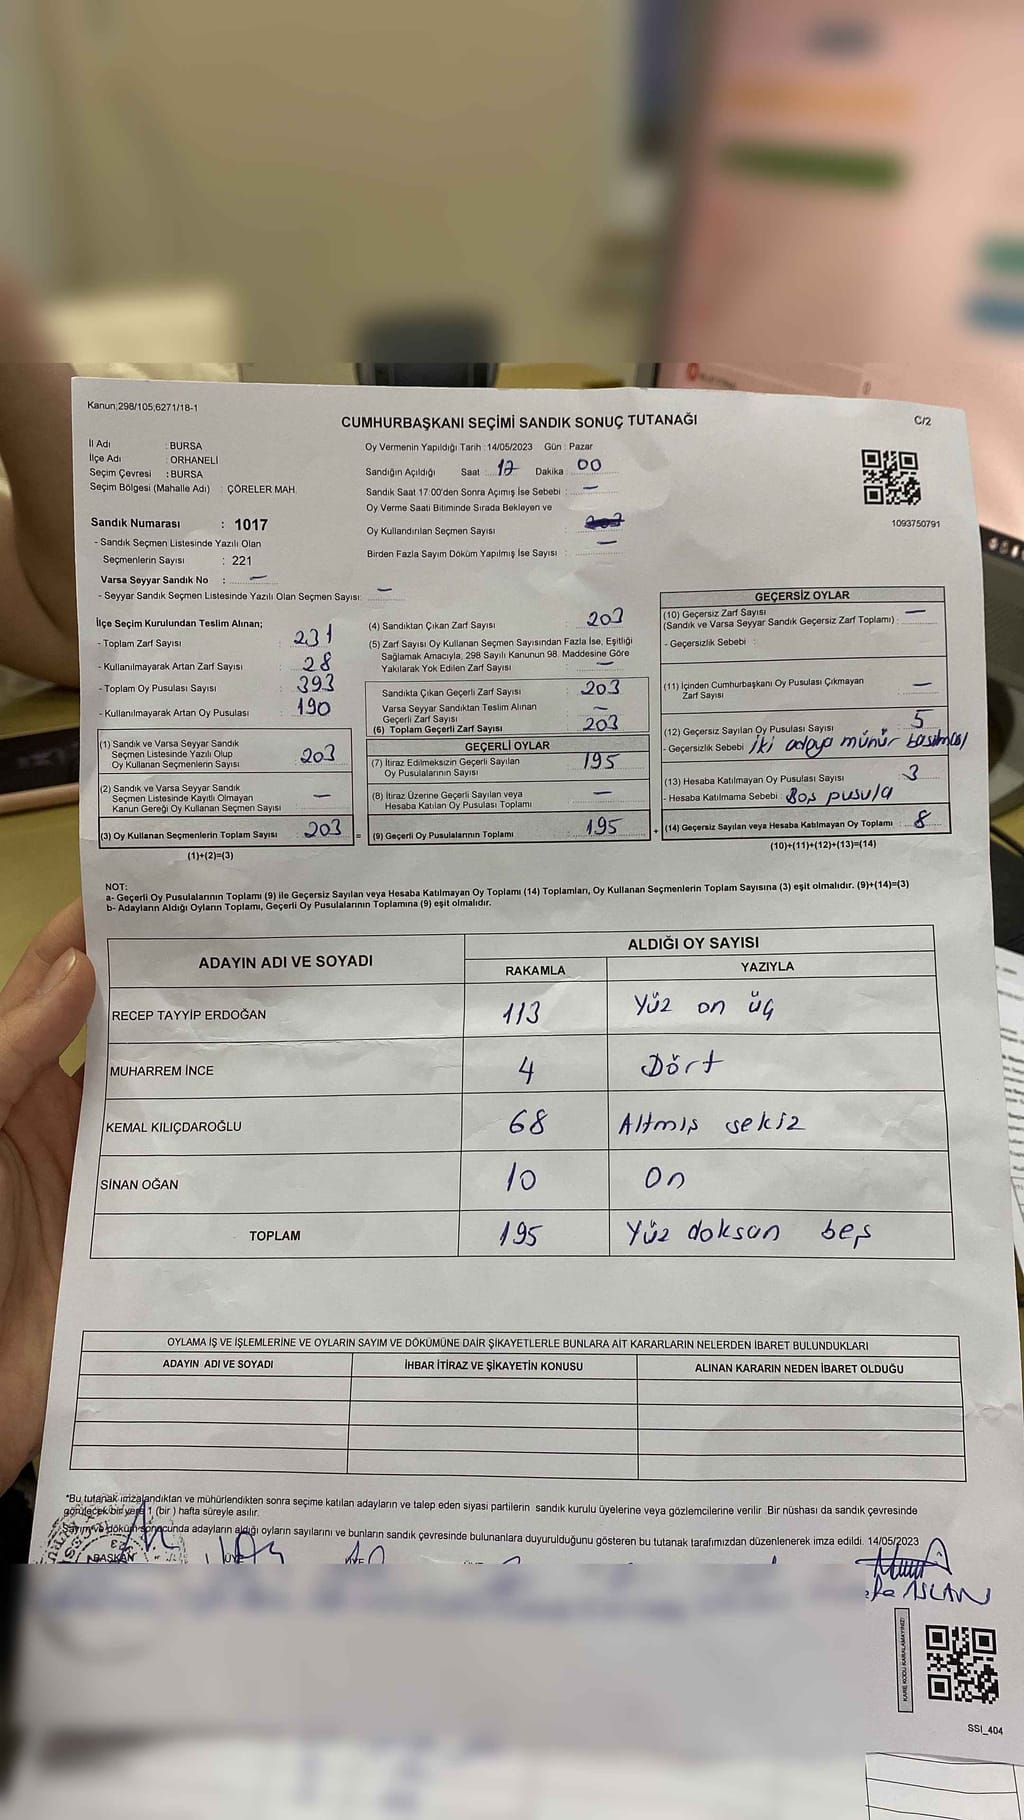 Kanun;298/105;6271/18-1
CUMHURBAŞKANI SEÇİMİ SANDIK SONUÇ TUTANAĞI
C/2
İl Adı : BURSA
İlçe Adı : ORHANELİ
Seçim Çevresi : BURSA
Seçim Bölgesi (Mahalle Adı) : ÇÖRELER MAH.
Oy Vermenin Yapıldığı Tarih : 14/05/2023 Gün : Pazar
Sandığın Açıldığı Saat : 17 Dakika : 00
Sandık Saat 17.00'den Sonra Açımış İse Sebebi : —
Oy Verme Saati Bitiminde Sırada Bekleyen ve
Oy Kullandırılan Seçmen Sayısı : —
Birden Fazla Sayım Döküm Yapılmış İse Sayısı :
1093750791
Sandık Numarası : 1017
- Sandık Seçmen Listesinde Yazılı Olan
Seçmenlerin Sayısı : 221
Varsa Seyyar Sandık No : —
- Seyyar Sandık Seçmen Listesinde Yazılı Olan Seçmen Sayısı: —
İlçe Seçim Kurulundan Teslim Alınan;
- Toplam Zarf Sayısı : 231
- Kullanılmayarak Artan Zarf Sayısı : 28
- Toplam Oy Pusulası Sayısı : 393
- Kullanılmayarak Artan Oy Pusulası : 190
(1) Sandık ve Varsa Seyyar Sandık
Seçmen Listesinde Yazılı Olup
Oy Kullanan Seçmenlerin Sayısı : 203
(2) Sandık ve Varsa Seyyar Sandık
Seçmen Listesinde Kayıtlı Olmayan
Kanun Gereği Oy Kullanan Seçmen Sayısı : —
(3) Oy Kullanan Seçmenlerin Toplam Sayısı : 203 =
(1)+(2)=(3)
(4) Sandıktan Çıkan Zarf Sayısı : 203
(5) Zarf Sayısı Oy Kullanan Seçmen Sayısından Fazla İse, Eşitliği
Sağlamak Amacıyla, 298 Sayılı Kanunun 98. Maddesine Göre
Yakılarak Yok Edilen Zarf Sayısı : —
Sandıkta Çıkan Geçerli Zarf Sayısı : 203
Varsa Seyyar Sandıktan Teslim Alınan
Geçerli Zarf Sayısı : —
(6) Toplam Geçerli Zarf Sayısı : 203
GEÇERLİ OYLAR
(7) İtiraz Edilmeksizin Geçerli Sayılan
Oy Pusulalarının Sayısı : 195
(8) İtiraz Üzerine Geçerli Sayılan veya
Hesaba Katılan Oy Pusulası Toplamı : —
(9) Geçerli Oy Pusulalarının Toplamı : 195 +
GEÇERSİZ OYLAR
(10) Geçersiz Zarf Sayısı
(Sandık ve Varsa Seyyar Sandık Geçersiz Zarf Toplamı) : —
- Geçersizlik Sebebi :
(11) İçinden Cumhurbaşkanı Oy Pusulası Çıkmayan
Zarf Sayısı : —
(12) Geçersiz Sayılan Oy Pusulası Sayısı : 5
- Geçersizlik Sebebi : İki adaya münür basılması
(13) Hesaba Katılmayan Oy Pusulası Sayısı : 3
- Hesaba Katılmama Sebebi : Boş pusula
(14) Geçersiz Sayılan veya Hesaba Katılmayan Oy Toplamı : 8
(10)+(11)+(12)+(13)=(14)
NOT:
a- Geçerli Oy Pusulalarının Toplamı (9) ile Geçersiz Sayılan veya Hesaba Katılmayan Oy Toplamı (14) Toplamları, Oy Kullanan Seçmenlerin Toplam Sayısına (3) eşit olmalıdır. (9)+(14)=(3)
b- Adayların Aldığı Oyların Toplamı, Geçerli Oy Pusulalarının Toplamına (9) eşit olmalıdır.
ADAYIN ADI VE SOYADI
ALDIĞI OY SAYISI
RAKAMLA YAZIYLA
RECEP TAYYİP ERDOĞAN 113 Yüz on üç
MUHARREM İNCE 4 Dört
KEMAL KILIÇDAROĞLU 68 Altmış sekiz
SİNAN OĞAN 10 On
TOPLAM 195 Yüz doksan beş
OYLAMA İŞ VE İŞLEMLERİNE VE OYLARIN SAYIM VE DÖKÜMÜNE DAİR ŞİKAYETLERLE BUNLARA AİT KARARLARIN NELERDEN İBARET BULUNDUKLARI
ADAYIN ADI VE SOYADI İHBAR İTİRAZ VE ŞİKAYETİN KONUSU ALINAN KARARIN NEDEN İBARET OLDUĞU
*Bu tutanak imzalandıktan ve mühürlendikten sonra seçime katılan adayların ve talep eden siyasi partilerin sandık kurulu üyelerine veya gözlemcilerine verilir. Bir nüshası da sandık çevresinde
görülecek bir yere 1 (bir ) hafta süreyle asılır.
Sayım ve döküm sonucunda adayların aldığı oyların sayılarını ve bunların sandık çevresinde bulunanlara duyurulduğunu gösteren bu tutanak tarafımızdan düzenlenerek imza edildi. 14/05/2023
BAŞKAN
ASLAN
KARE KODU KARALAMAYINIZ!
SSI_404